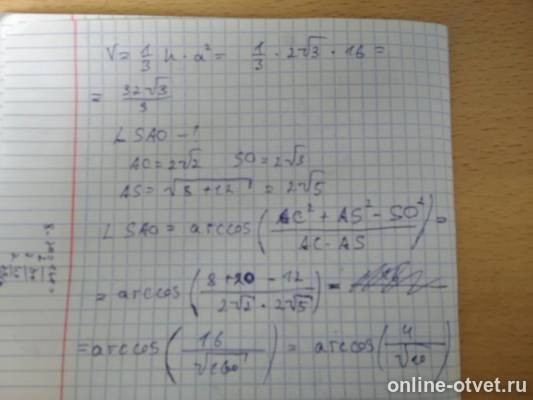 V = 1/3 h · a² = 1/3 · 2√3 · 16 =
= 32√3/3
∠ SAO - ?
AO = 2√2 SO = 2√3
AS = √(8 + 12) = 2√5
∠ SAO = arccos((AC² + AS² - SO²)/(AC · AS)) =
= arccos((8 + 20 - 12)/(2√2 · 2√5)) =
= arccos(16/√160) = arccos(4/√10)
online-otvet.ru